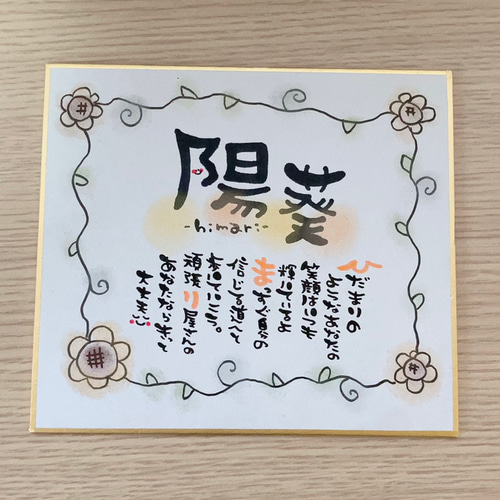 陽葵
-himari-
ひだまりの
ようなあなたの
笑顔はいつも
輝いているよ
まっすぐ見の
信じる道へと
歩いていこう。
頑張り屋さんの
あなたならきっと
大丈夫